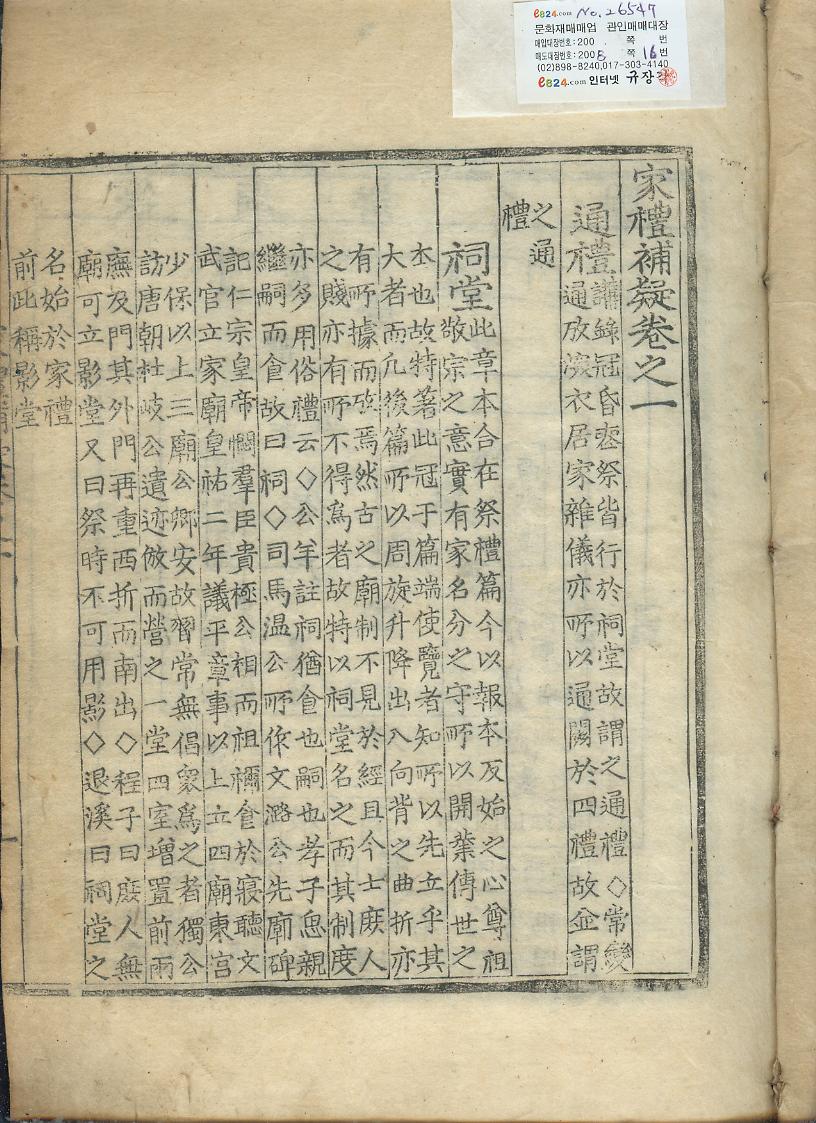 e824.com No.26547
문화재매매업 관인매매대장
매입대장번호: 200 . 쪽 번
매도대장번호: 2008 쪽 16번
(02)898-8240,017-303-4140
e824.com 인터넷 규장각
家禮補疑卷之一
通禮
諱錄冠昏喪祭皆行於祠堂故謂之通禮◇常變
通放深衣居家雜儀亦所以通關於四禮故並謂
之通
禮
祠堂
此章本合在祭禮篇今以報本反始之心尊祖
敬宗之意實有家名分之守所以開業傳世之
本也故特著此冠于篇端使覽者知所以先立乎其
大者而凡後篇所以周旋升降出入向背之曲折亦
有所據而攷焉然古之廟制不見於經且今士庶人
之賤亦有所不得爲者故特以祠堂名之而其制度
亦多用俗禮云◇公羊註祠猶食也嗣也孝子思親
繼嗣而食故曰祠◇司馬溫公所作文潞公先廟碑
記仁宗皇帝憫羣臣貴極公相而祖禰食於寢聽文
武官立家廟皇祐二年議平章事以上立四廟東宮
少保以上三廟公卿安故習常無倡衆爲之者獨公
訪唐朝杜岐公遺迹倣而營之一堂四室增置前兩
廡及門其外門再重西折而南出◇程子曰庶人無
廟可立影堂又曰祭時不可用影◇退溪曰祠堂之
名始於家禮
前此稱影堂